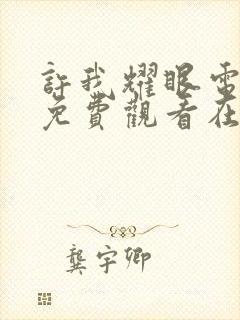 許我耀眼電
免費觀看在
龔宇卿